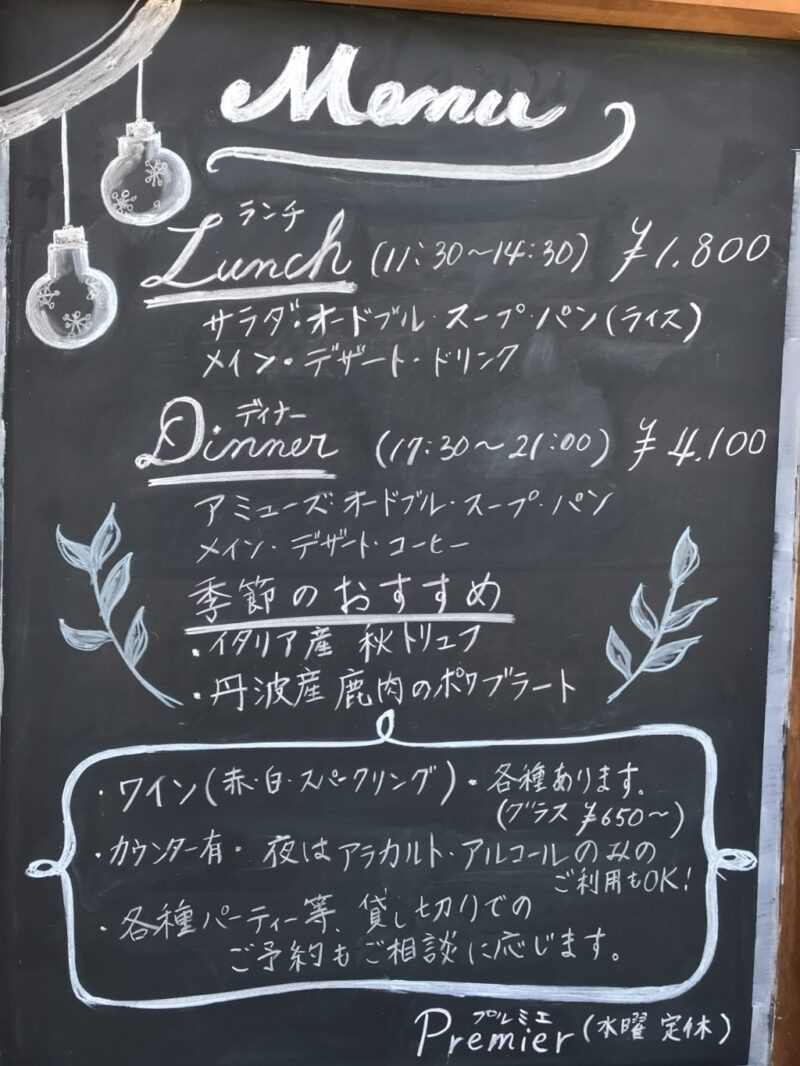 Menu
ランチ
Lunch (11:30〜14:30) ¥1.800
サラダ・オードブル・スープ・パン(ライス)
メイン・デザート・ドリンク
ディナー
Dinner (17:30〜21:00) ¥4.100
アミューズ・オードブル・スープ・パン
メイン・デザート・コーヒー
季節のおすすめ
・イタリア産 秋トリュフ
・丹波産 鹿肉のポワブラート
・ワイン(赤・白・スパークリング)・各種あります。
(グラス ¥650〜)
・カウンター有・夜はアラカルト・アルコールのみの
ご利用もOK!
・各種パーティー等、貸し切りでの
ご予約もご相談に応じます。
プルミエ
Premier (水曜 定休)